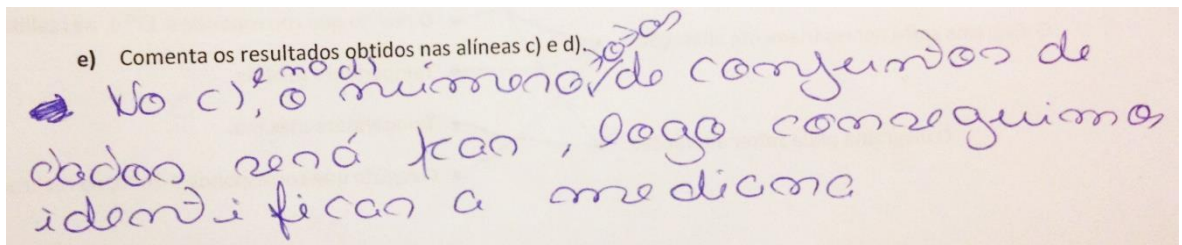 e) Comenta os resultados obtidos nas alíneas c) e d).
No c), e no d) o número de conjuntos de
dados será par, logo conseguimos
identificar a mediana